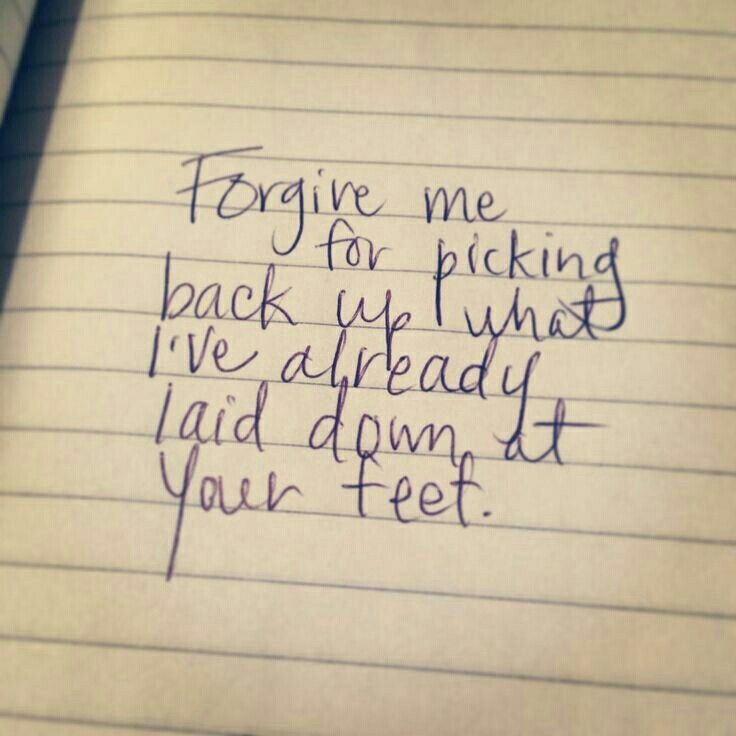 Forgive me
for picking
back up what
I've already
laid down at
Your feet.